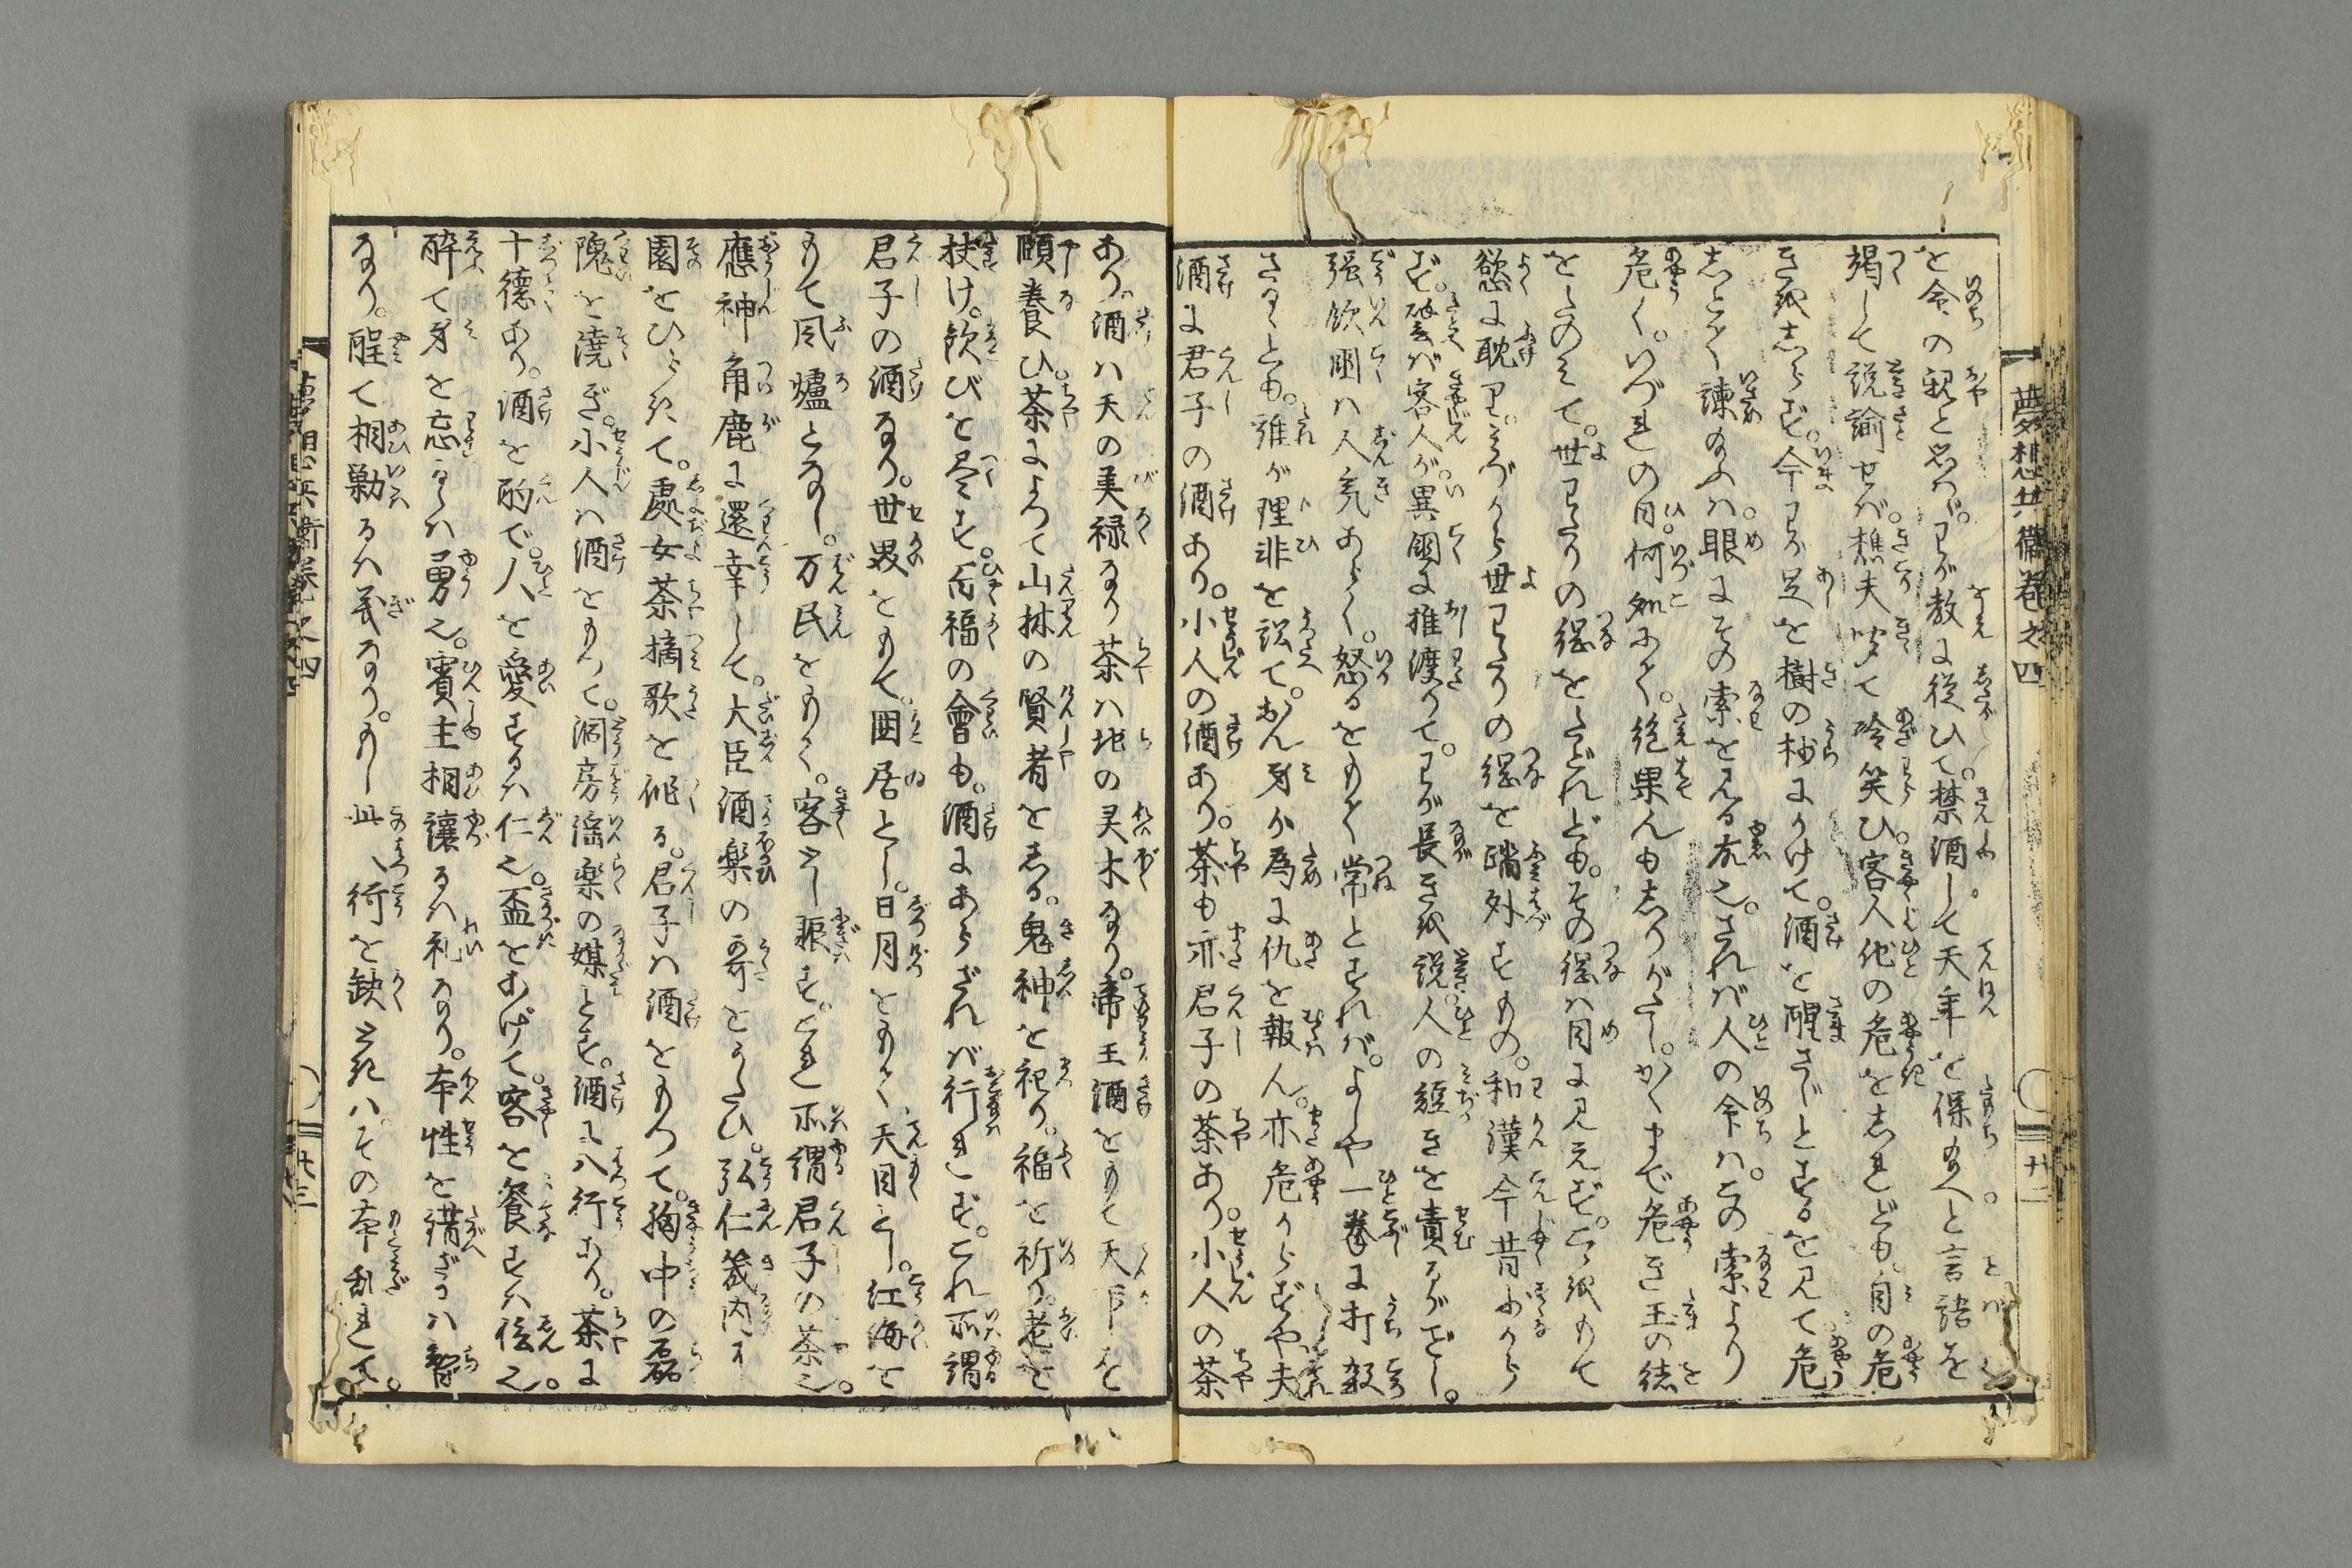 夢想兵衛巻之四
廿二
を命の親と思はゞ。わが教に従ひて。禁酒して天年を保給へと言語を
竭して説諭せば。樵夫聞て冷笑ひ。客人他の危を志れども。自の危
きを志らず。今わが足を樹の杪にかけて。酒を醒さじとするを見て危
しとて諫給ふは。眼にその索を見る故也。されば人の命は。この索より
危く。いづれの日。何処にて。絶果んも志りがたし。かくまで危き玉の緒
をたのみて。世わたりの縄をたどれども。その縄は目に見えず。こゝをもて
慾に耽り。みづから世わたりの縄を踏外すもの。和漢今昔少から
ず。譬ば客人が。異國に推渡りて。わが長きを説。人の短きを責るがごとし。
強飲國は人気あらく。怒るをもて常とすれば。よしや一拳に打殺
さるゝとも。誰が理非を訟て。おん身が為に仇を報ん。亦危からずや。夫
酒に君子の酒あり。小人の酒あり。茶も亦君子の茶あり。小人の茶
あり。酒は天の美禄なり茶は地の灵木なり。帝王酒をもて天下を
頤養ひ。茶によつて山林の賢者をしる。鬼神を祀り。福を祈り。老を
扶け。飲びを尽す。百福の會も。酒にあらざれば行れず。これ所謂
君子の酒なり。世界をもて。囲居とし。日月をもて天目とし。江海を
もて風爐となし。万民をもて。客とし賑す。これ所謂君子の茶也。
應神角鹿に還幸して。大臣酒楽の哥をうたひ。弘仁畿内に
園をひらきて。處女茶摘歌を俳る。君子は酒をもつて。胸中の磊
隗を澆ぎ。小人は酒をもつて。洞房滛楽の媒とす。酒に八行あり。茶に
十徳あり。酒を酌で。人を愛するは仁也。盃をあげて。客を餐すは信也。
酔て身を忘るゝは勇也。賓主相讓るは礼なり。本性を𮈔ざるは智
なり。醒て相勦るは義なり。もし此八行を缺ときは。その本乱れて。
夢想兵衛巻之四
廿三